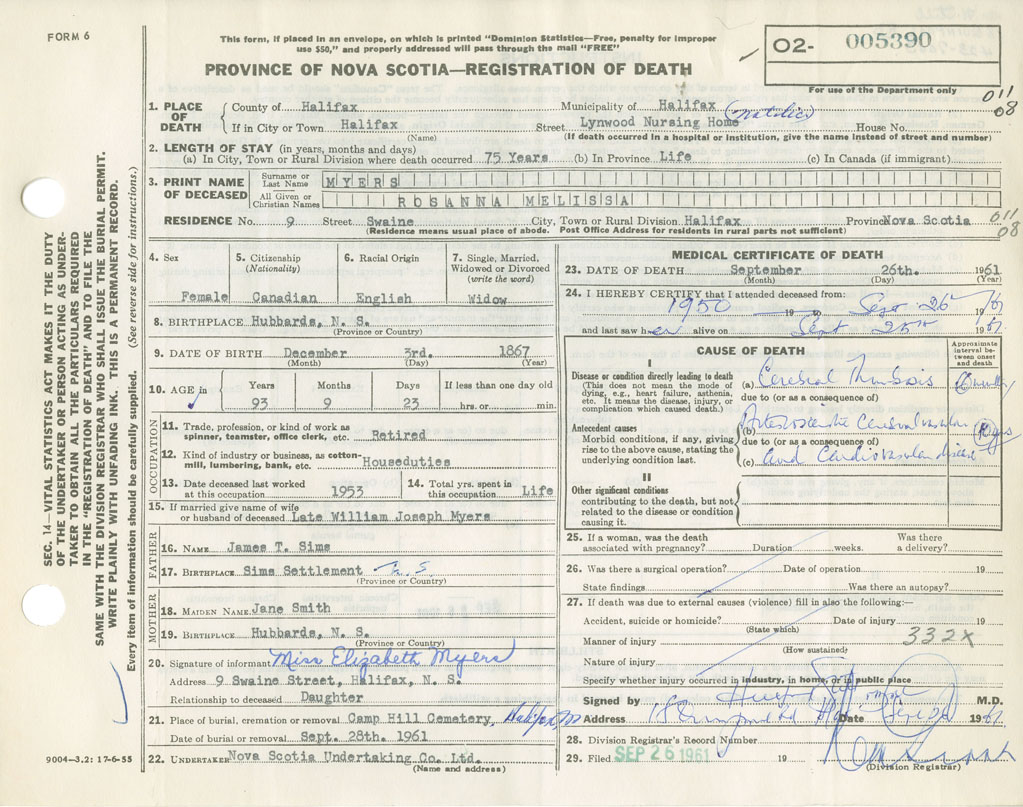 FORM 6
This form, if placed in an envelope, on which is printed "Dominion Statistics—Free, penalty for improper
use $50," and properly addressed will pass through the mail "FREE"
PROVINCE OF NOVA SCOTIA—REGISTRATION OF DEATH
O2- 005390
For use of the Department only
011
08
1. PLACE OF DEATH
County of Halifax Municipality of Halifax
If in City or Town Halifax Street Lynwood Nursing Home House No.
(Name) (If death occurred in a hospital or institution, give the name instead of street and number)
2. LENGTH OF STAY (in years, months and days)
(a) In City, Town or Rural Division where death occurred 75 Years (b) In Province Life (c) In Canada (if immigrant)
3. PRINT NAME OF DECEASED
Surname or Last Name MYERS
All Given or Christian Names ROSANNA MELISSA
RESIDENCE No. 9 Street Swaine City, Town or Rural Division Halifax Province Nova Scotia
011
08
(Residence means usual place of abode. Post Office Address for residents in rural parts not sufficient)
4. Sex Female
5. Citizenship (Nationality) Canadian
6. Racial Origin English
7. Single, Married, Widowed or Divorced (write the word) Widow
8. BIRTHPLACE Hubbards, N. S.
(Province or Country)
9. DATE OF BIRTH December 3rd. 1867
(Month) (Day) (Year)
10. AGE in Years Months Days If less than one day old
93 9 23 hrs. or min.
OCCUPATION
11. Trade, profession, or kind of work as
spinner, teamster, office clerk, etc. Retired
12. Kind of industry or business, as cotton-
mill, lumbering, bank, etc. Houseduties
13. Date deceased last worked at this occupation 1953
14. Total yrs. spent in this occupation Life
15. If married give name of wife
or husband of deceased Late William Joseph Myers
FATHER
16. NAME James T. Sims
17. BIRTHPLACE Sims Settlement N.S.
(Province or Country)
MOTHER
18. MAIDEN NAME Jane Smith
19. BIRTHPLACE Hubbards, N. S.
(Province or Country)
20. Signature of informant Miss Elizabeth Myers
Address 9 Swaine Street, Halifax, N. S.
Relationship to deceased Daughter
21. Place of burial, cremation or removal Camp Hill Cemetery, Halifax, NS
Date of burial or removal Sept. 28th. 1961
22. UNDERTAKER Nova Scotia Undertaking Co. Ltd.
(Name and address)
MEDICAL CERTIFICATE OF DEATH
23. DATE OF DEATH September 26th. 1961
(Month) (Day) (Year)
24. I HEREBY CERTIFY that I attended deceased from:
1950 19 to Sept 26 1961
and last saw her alive on Sept 25th 1961
CAUSE OF DEATH
Approximate interval between onset and death
I
Disease or condition directly leading to death
(This does not mean the mode of
dying, e.g., heart failure, asthenia,
etc. It means the disease, injury, or
complication which caused death.)
(a) Cerebral Thrombosis
due to (or as a consequence of)
Antecedent causes
Morbid conditions, if any, giving
rise to the above cause, stating the
underlying condition last.
(b) Arteriosclerotic Cerebrovascular
due to (or as a consequence of)
(c) and Cardiovascular disease
II
Other significant conditions
contributing to the death, but not
related to the disease or condition
causing it.
25. If a woman, was the death Was there
associated with pregnancy? Duration weeks. a delivery?
26. Was there a surgical operation? Date of operation 19
State findings Was there an autopsy?
27. If death was due to external causes (violence) fill in also the following:—
Accident, suicide or homicide? Date of injury 19
(State which)
332X
Manner of injury
(How sustained)
Nature of injury
Specify whether injury occurred in industry, in home, or in public place
Signed by M.D.
Address Date 1961
28. Division Registrar's Record Number
29. Filed SEP 26 1961 19
(Division Registrar)
SEC. 14—VITAL STATISTICS ACT MAKES IT THE DUTY
OF THE UNDERTAKER OR PERSON ACTING AS UNDER-
TAKER TO OBTAIN ALL THE PARTICULARS REQUIRED
IN THE "REGISTRATION OF DEATH" AND TO FILE THE
SAME WITH THE DIVISION REGISTRAR WHO SHALL ISSUE THE BURIAL PERMIT.
WRITE PLAINLY WITH UNFADING INK. THIS IS A PERMANENT RECORD.
Every item of information should be carefully supplied. (See reverse side for instructions.)
9004—3.2: 17-6-55